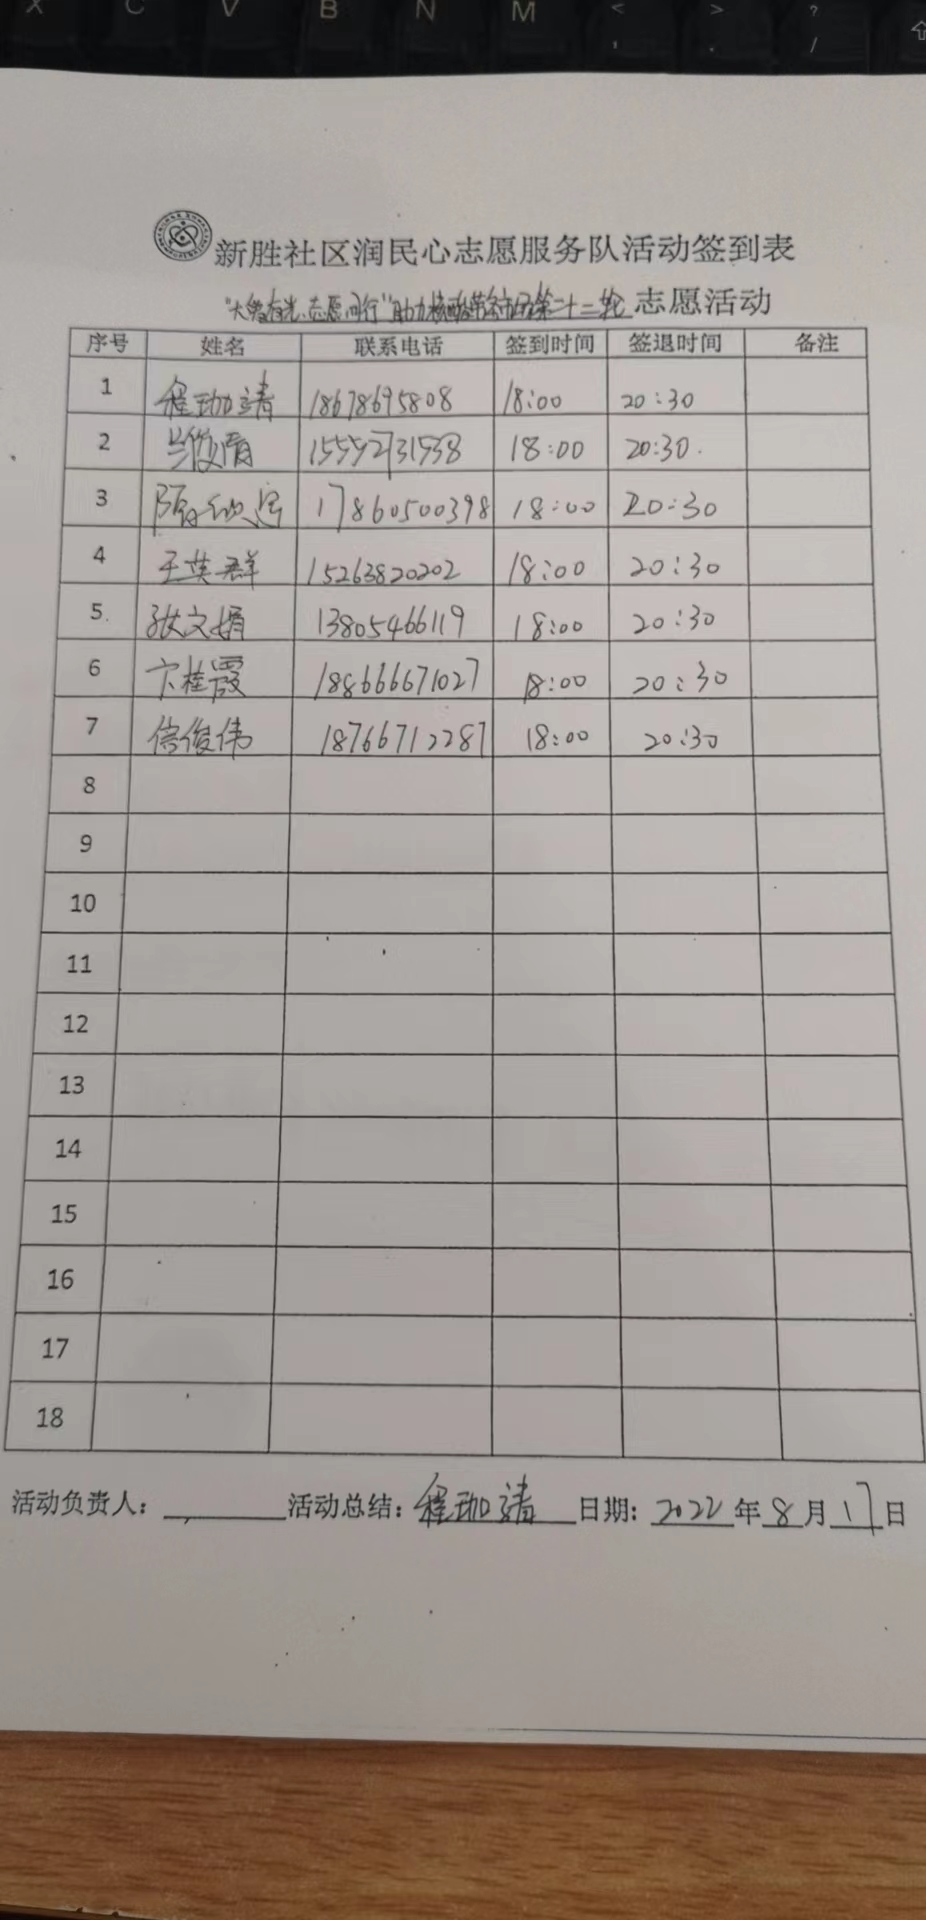 X C V B N M < > ?
, . /
新胜社区润民心志愿服务队活动签到表
志愿同行"助力核酸 第二十二轮 志愿活动
序号 姓名 联系电话 签到时间 签退时间 备注
1 程珈靖 18678695808 18:00 20:30
2 兰俊倩 15552731538 18:00 20:30.
3 17860500398 18:00 20:30
4 王英群 15263820202 18:00 20:30
5. 张文娟 13805466119 18:00 20:30
6 卞桂霞 188666671027 18:00 20:30
7 信俊伟 18766712287 18:00 20:30
8
9
10
11
12
13
14
15
16
17
18
活动负责人: 活动总结: 程珈靖 日期: 2022 年 8 月 17 日